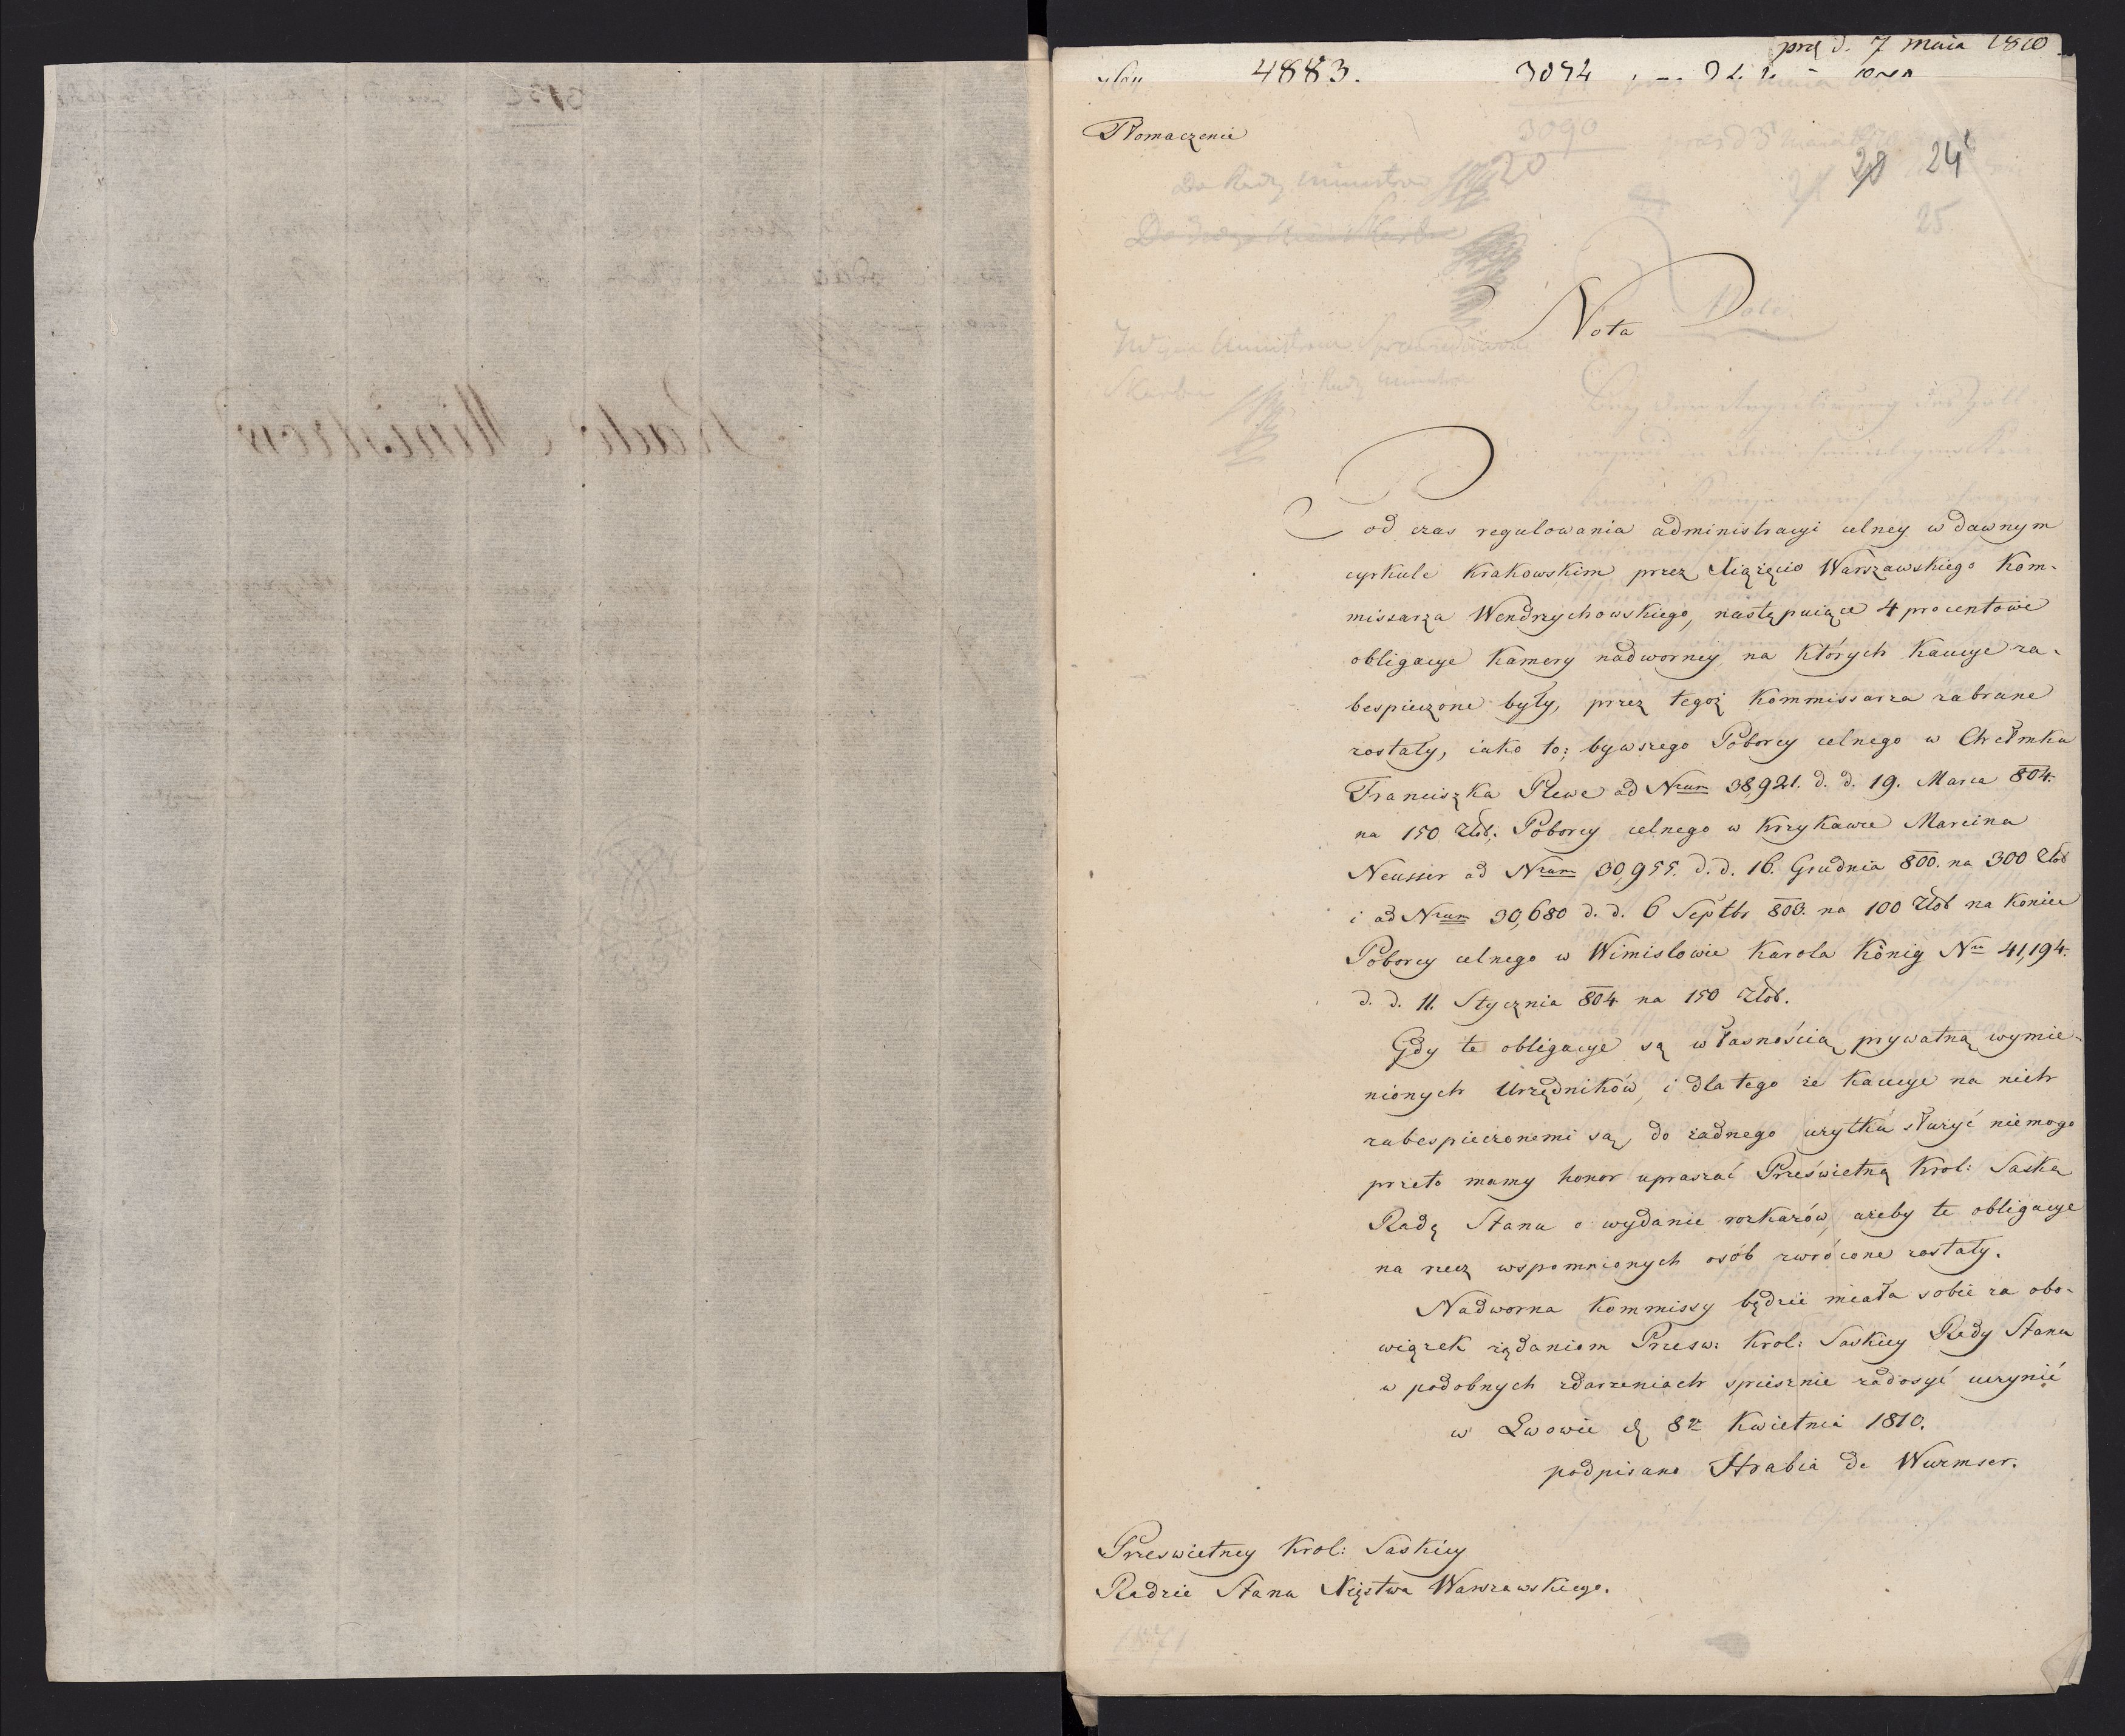 prez d. 7 maia 1810
4883.
Tłomaczenie
3090
20
28 24
25
Nota
Pod czas regulowania administracyi celney w dawnym
cyrkule Krakowskim przez Xiązęcio Warszawskiego Kom-
missarza Wendrzychowskiego, następuiące 4 procentowe
obligacye Kamery nadworney na których Kaucye za-
bespieczone były, przez tegoż Kommissarza zabrane
zostały, iako to; bywszego Poborcy celnego w Chełmku
Franciszka Plewe ad Nrum 38,921. d. d. 19. Marca 804.
na 150 Złot. Poborcy celnego w Krzykawce Marcina
Neusser ad Nrum 30,955. d. d. 16. Grudnia 800. na 300 Złot
i ad Nrum 30,680 d. d. 6 Septbr 800. na 100 Złot na koniec
Poborcy celnego w Wimislowie Karola König Nro 41,194.
d. d. 11. Stycznia 804 na 150 Złot.
Gdy te obligacye są własnością prywatną wymie-
nionych Urzędników, i dla tego że kaucye na nich
zabespieczonemi są, do żadnego użytku służyć niemogo
przeto mamy honor upraszać Prześwietną Krol: Saska
Radę Stanu o wydanie rozkazów, ażeby te obligacye
na rzecz wspomnionych osób zwrócone zostały.
Nadworna Kommissy będzie miała sobie za obo-
wiązek żądaniom Przesw: Krol: Saskiey Rady Stanu
w podobnych zdarzeniach spiesznie zadosyć uczynić
w Lwowie d 8go Kwietnia 1810.
podpisano Hrabia de Wurmser.
Przeswietney Krol: Saskiey
Radzie Stanu Xięstwa Warszawskiego.